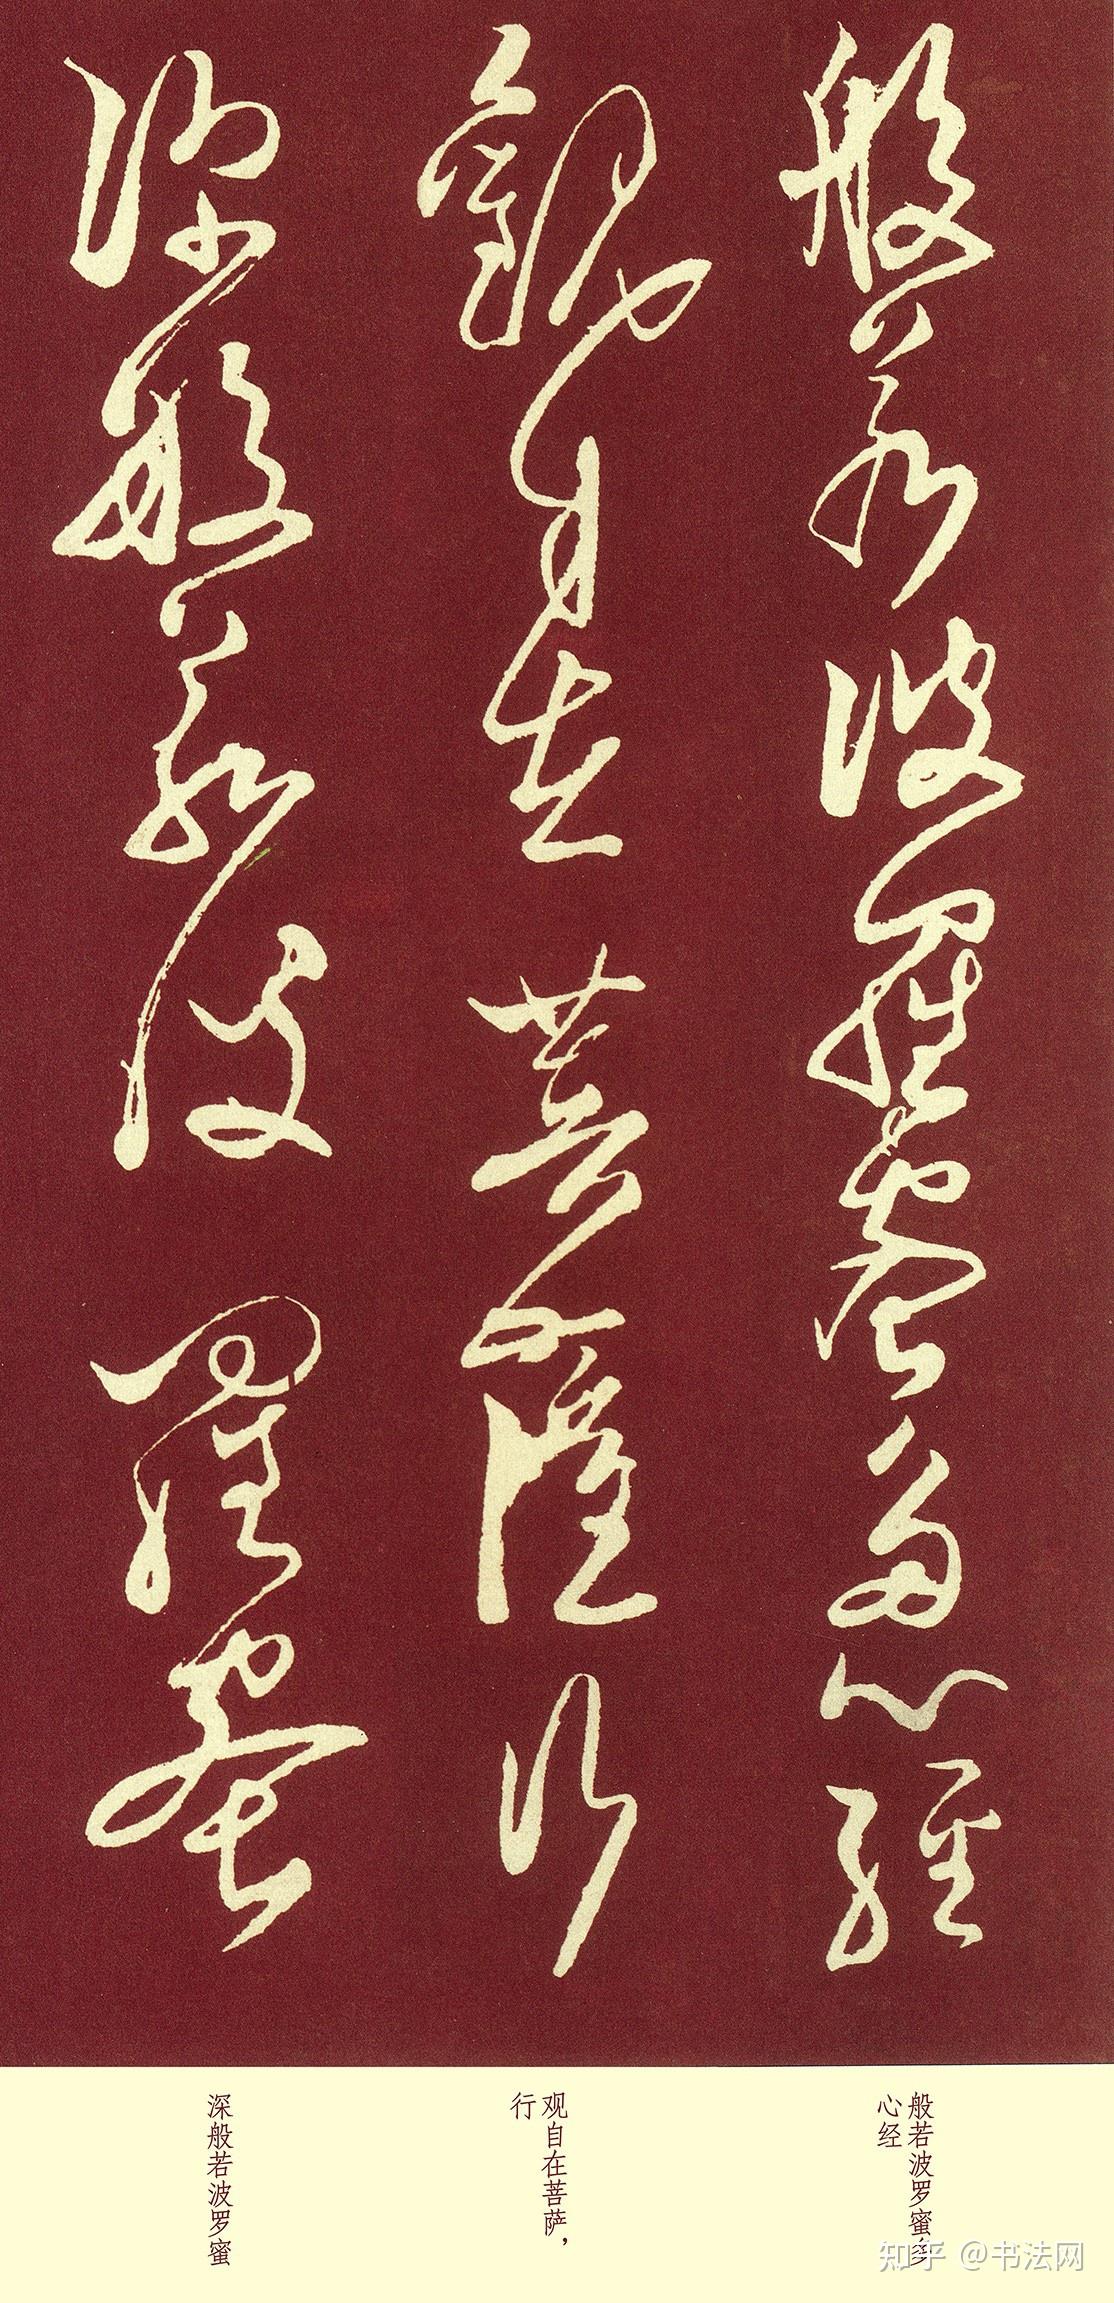 般若波羅蜜多心經
觀自在菩薩行
深般若波羅蜜
般若波罗蜜多
心经
观自在菩萨，
行
深般若波罗蜜
知乎 @书法网